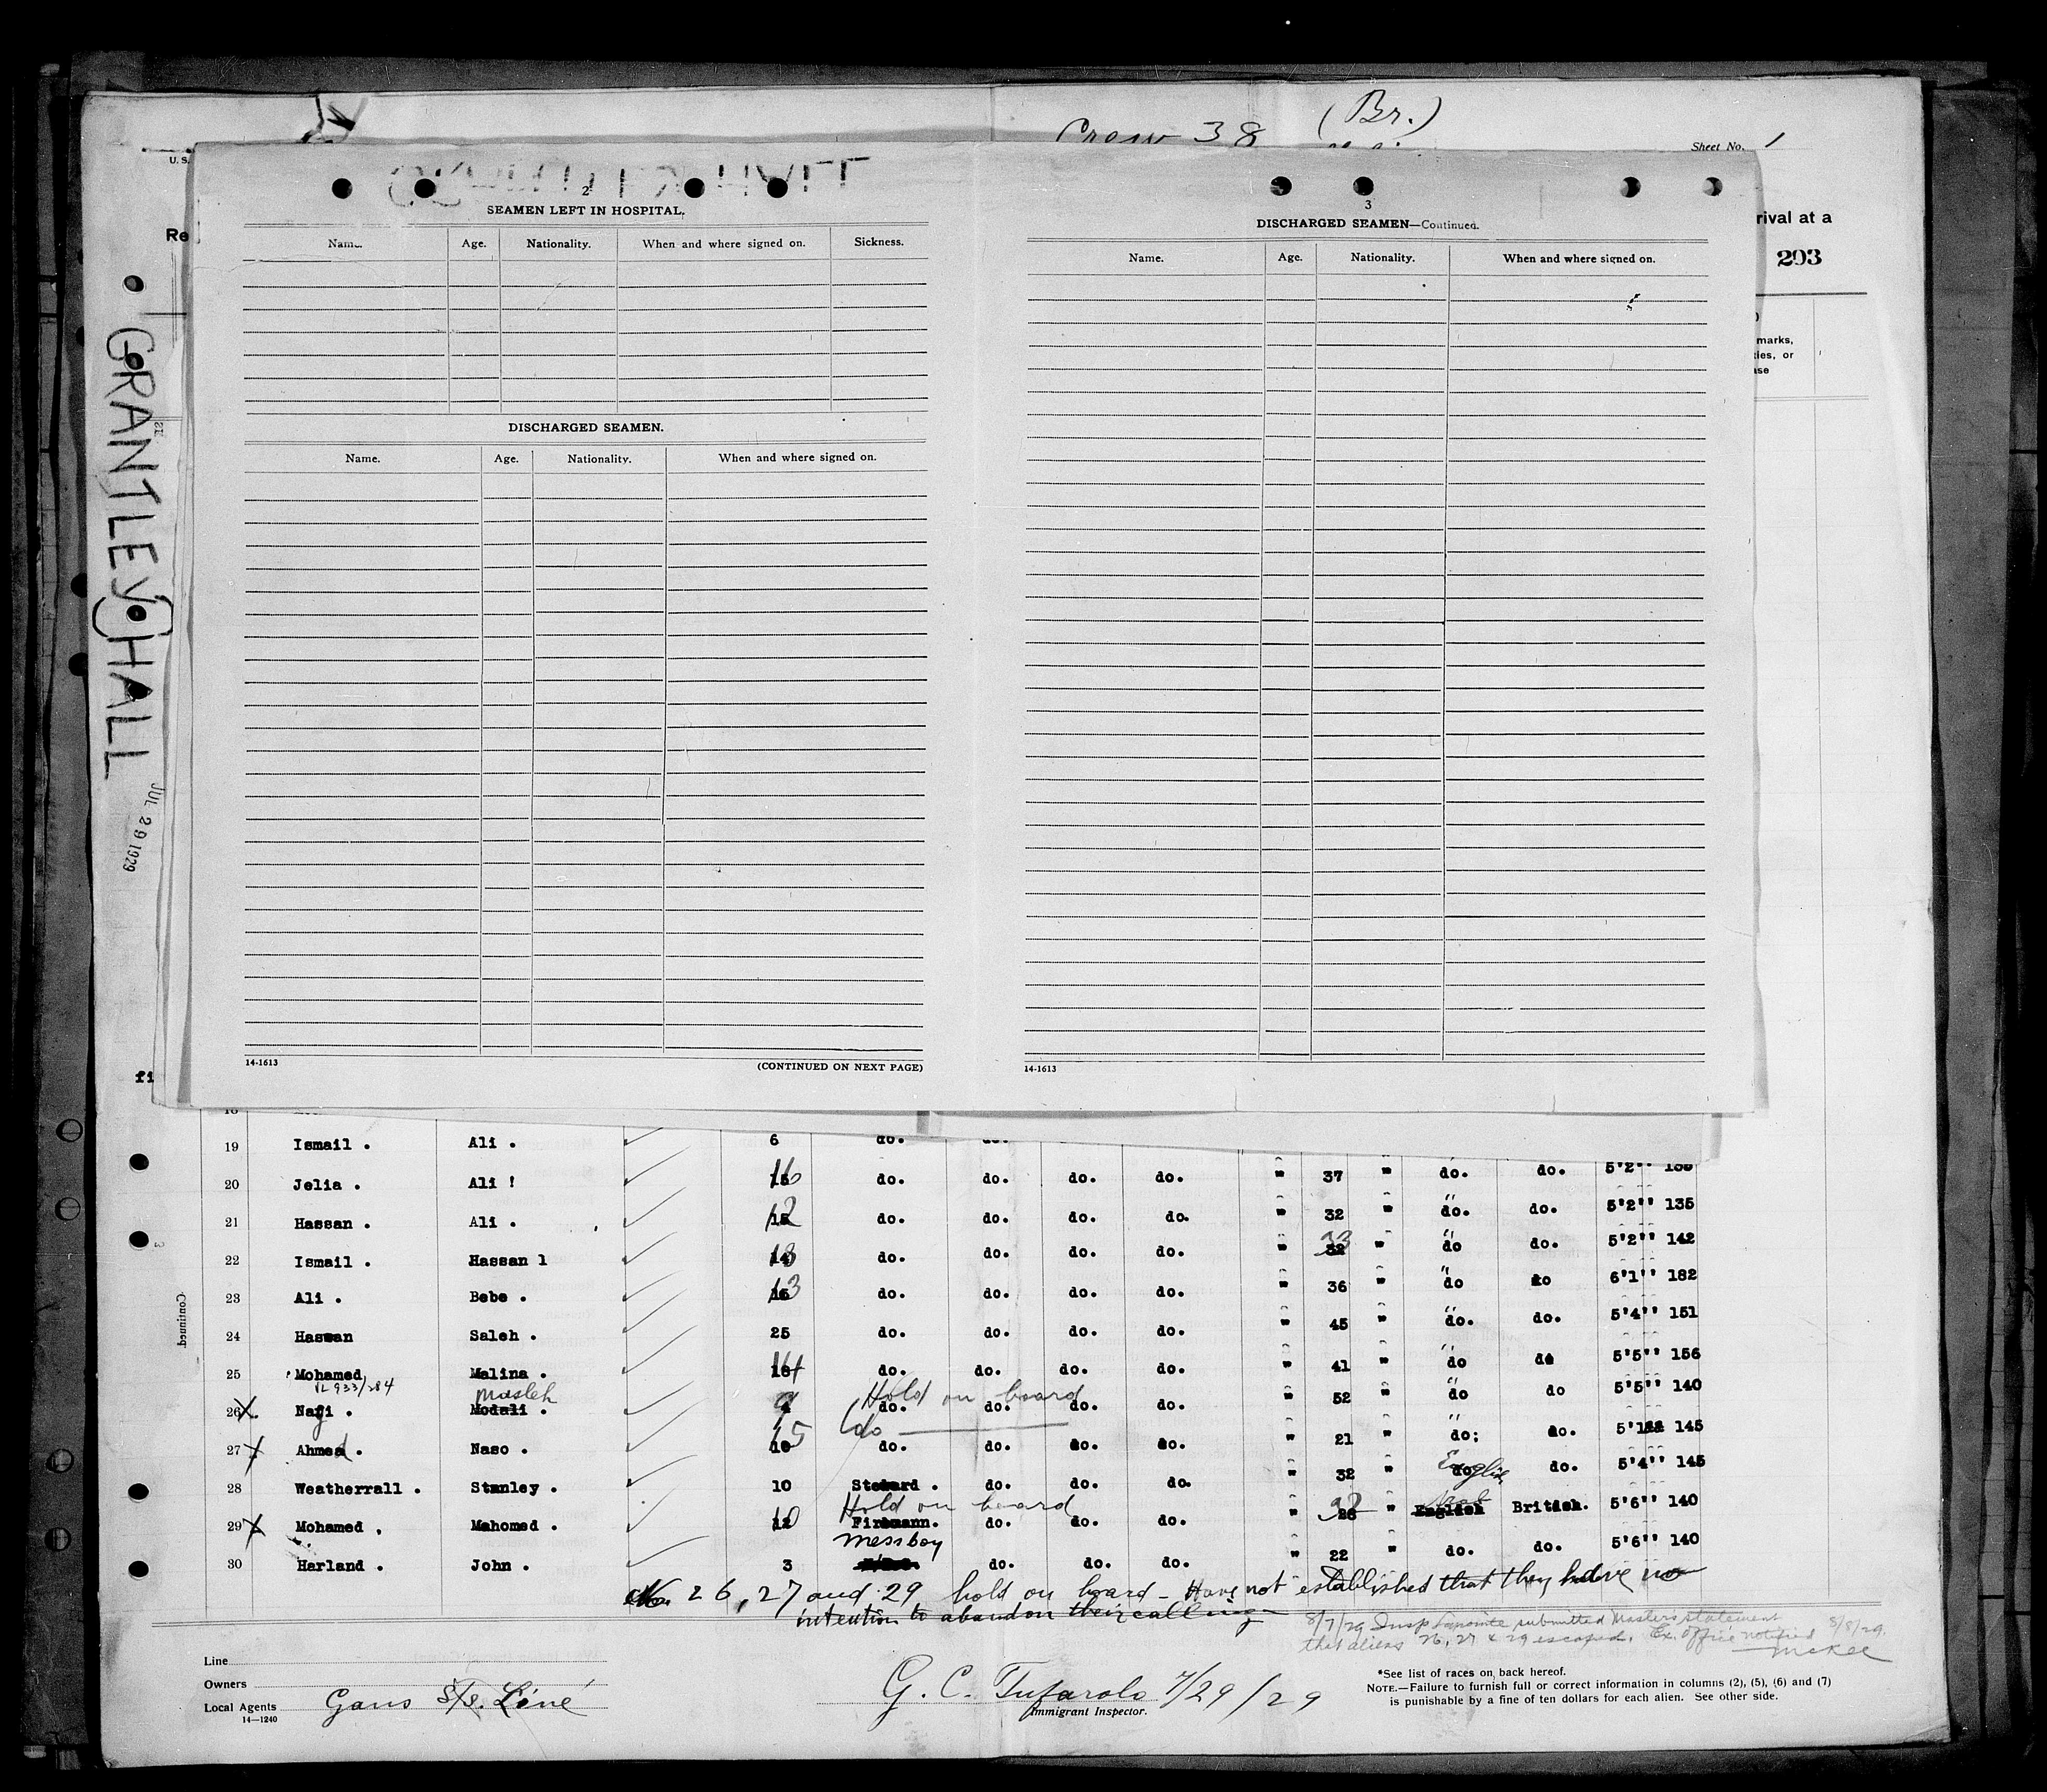 (Br.)
Crew 38
Sheet No. 1
U.S.
Re
rival at a
203
marks,
ties, or
ase
GRANTLEY HALL
JUL 29 1929
2
SEAMEN LEFT IN HOSPITAL.
Name. Age. Nationality. When and where signed on. Sickness.
DISCHARGED SEAMEN.
Name. Age. Nationality. When and where signed on.
14-1613 (CONTINUED ON NEXT PAGE)
3
DISCHARGED SEAMEN—Continued.
Name. Age. Nationality. When and where signed on.
14-1613
fi
18
19 Ismail . Ali . 6 do. do.
20 Jelia . Ali ! 16 do. do. do. do. " 37 " do. do. 5'2''
21 Hassan . Ali . 12 do. do. do. do. " 32 " do. do. 5'2'' 135
22 Ismail . Hassan 1 18 do. do. do. do. " 33 " do do. 5'2'' 142
23 Ali . Bebe . 13 do. do. do. do. " 36 " do do 6'1'' 182
24 Hassan Saleh . 25 do. do. do. do. " 45 " do. do. 5'4'' 151
25 Mohamed Malina . 14 do. do. do. do. " 41 " do do 5'5'' 156
VL 933/284 Masleh Hold on board
26 X Nagi . Modali . 9 do. do. do. do. " 52 " do do 5'5'' 140
do
27 X Ahmed . Naso . 15 do. do. do. do. " 21 " do: do. 145
28 Weatherrall . Stanley . 10 Steward . do. do. do. " 32 " English do. 5'4'' 145
Hold on board
29 X Mohamed . Mahomed . 10 Firemann. do. do. do. " 26 " English British. 5'6'' 140
Messboy
30 Harland . John . 3 do. do. do. " 22 " do. do. 5'6'' 140
No. 26, 27 and 29 hold on board - Have not established that they have no
intention to abandon their calling
8/7/29 Insp submitted Masters statement 8/8/29.
that aliens 26, 27 & 29 escaped. Ex. Office notified
McKee
Continued
Line
Owners
Local Agents Gans S/S. Line
14—1240
G. C. Tufarolo 7/29/29
Immigrant Inspector.
*See list of races on back hereof.
NOTE.—Failure to furnish full or correct information in columns (2), (5), (6) and (7)
is punishable by a fine of ten dollars for each alien. See other side.